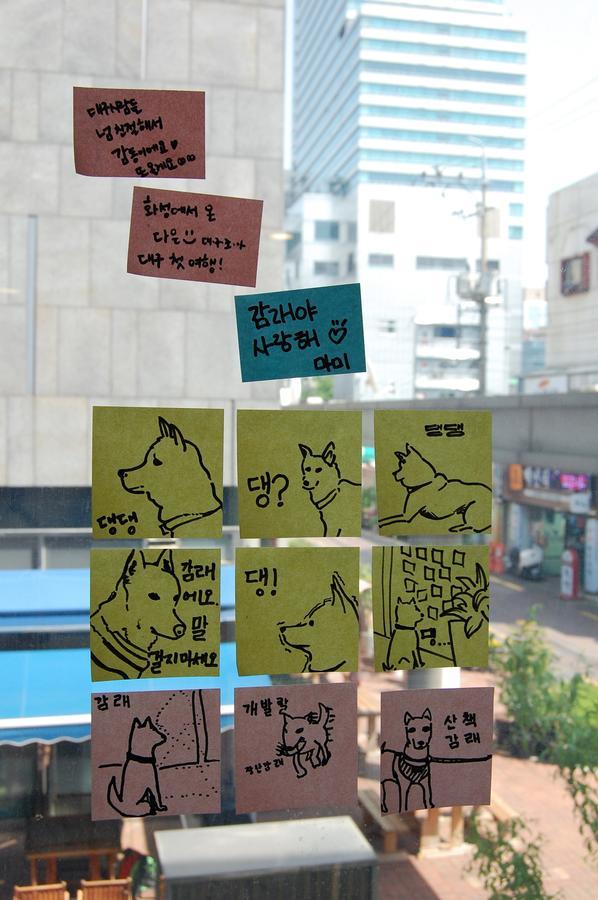 대구사람들
넘 친절해서
감동이에요
또 올게요
화성에서 온
다은
대구 첫 여행!
감래야
사랑해
마미
댕댕
댕?
댕댕
감래
어요.
말
걸지마세요
댕!
댕...
감래
개발랄
산책
감래